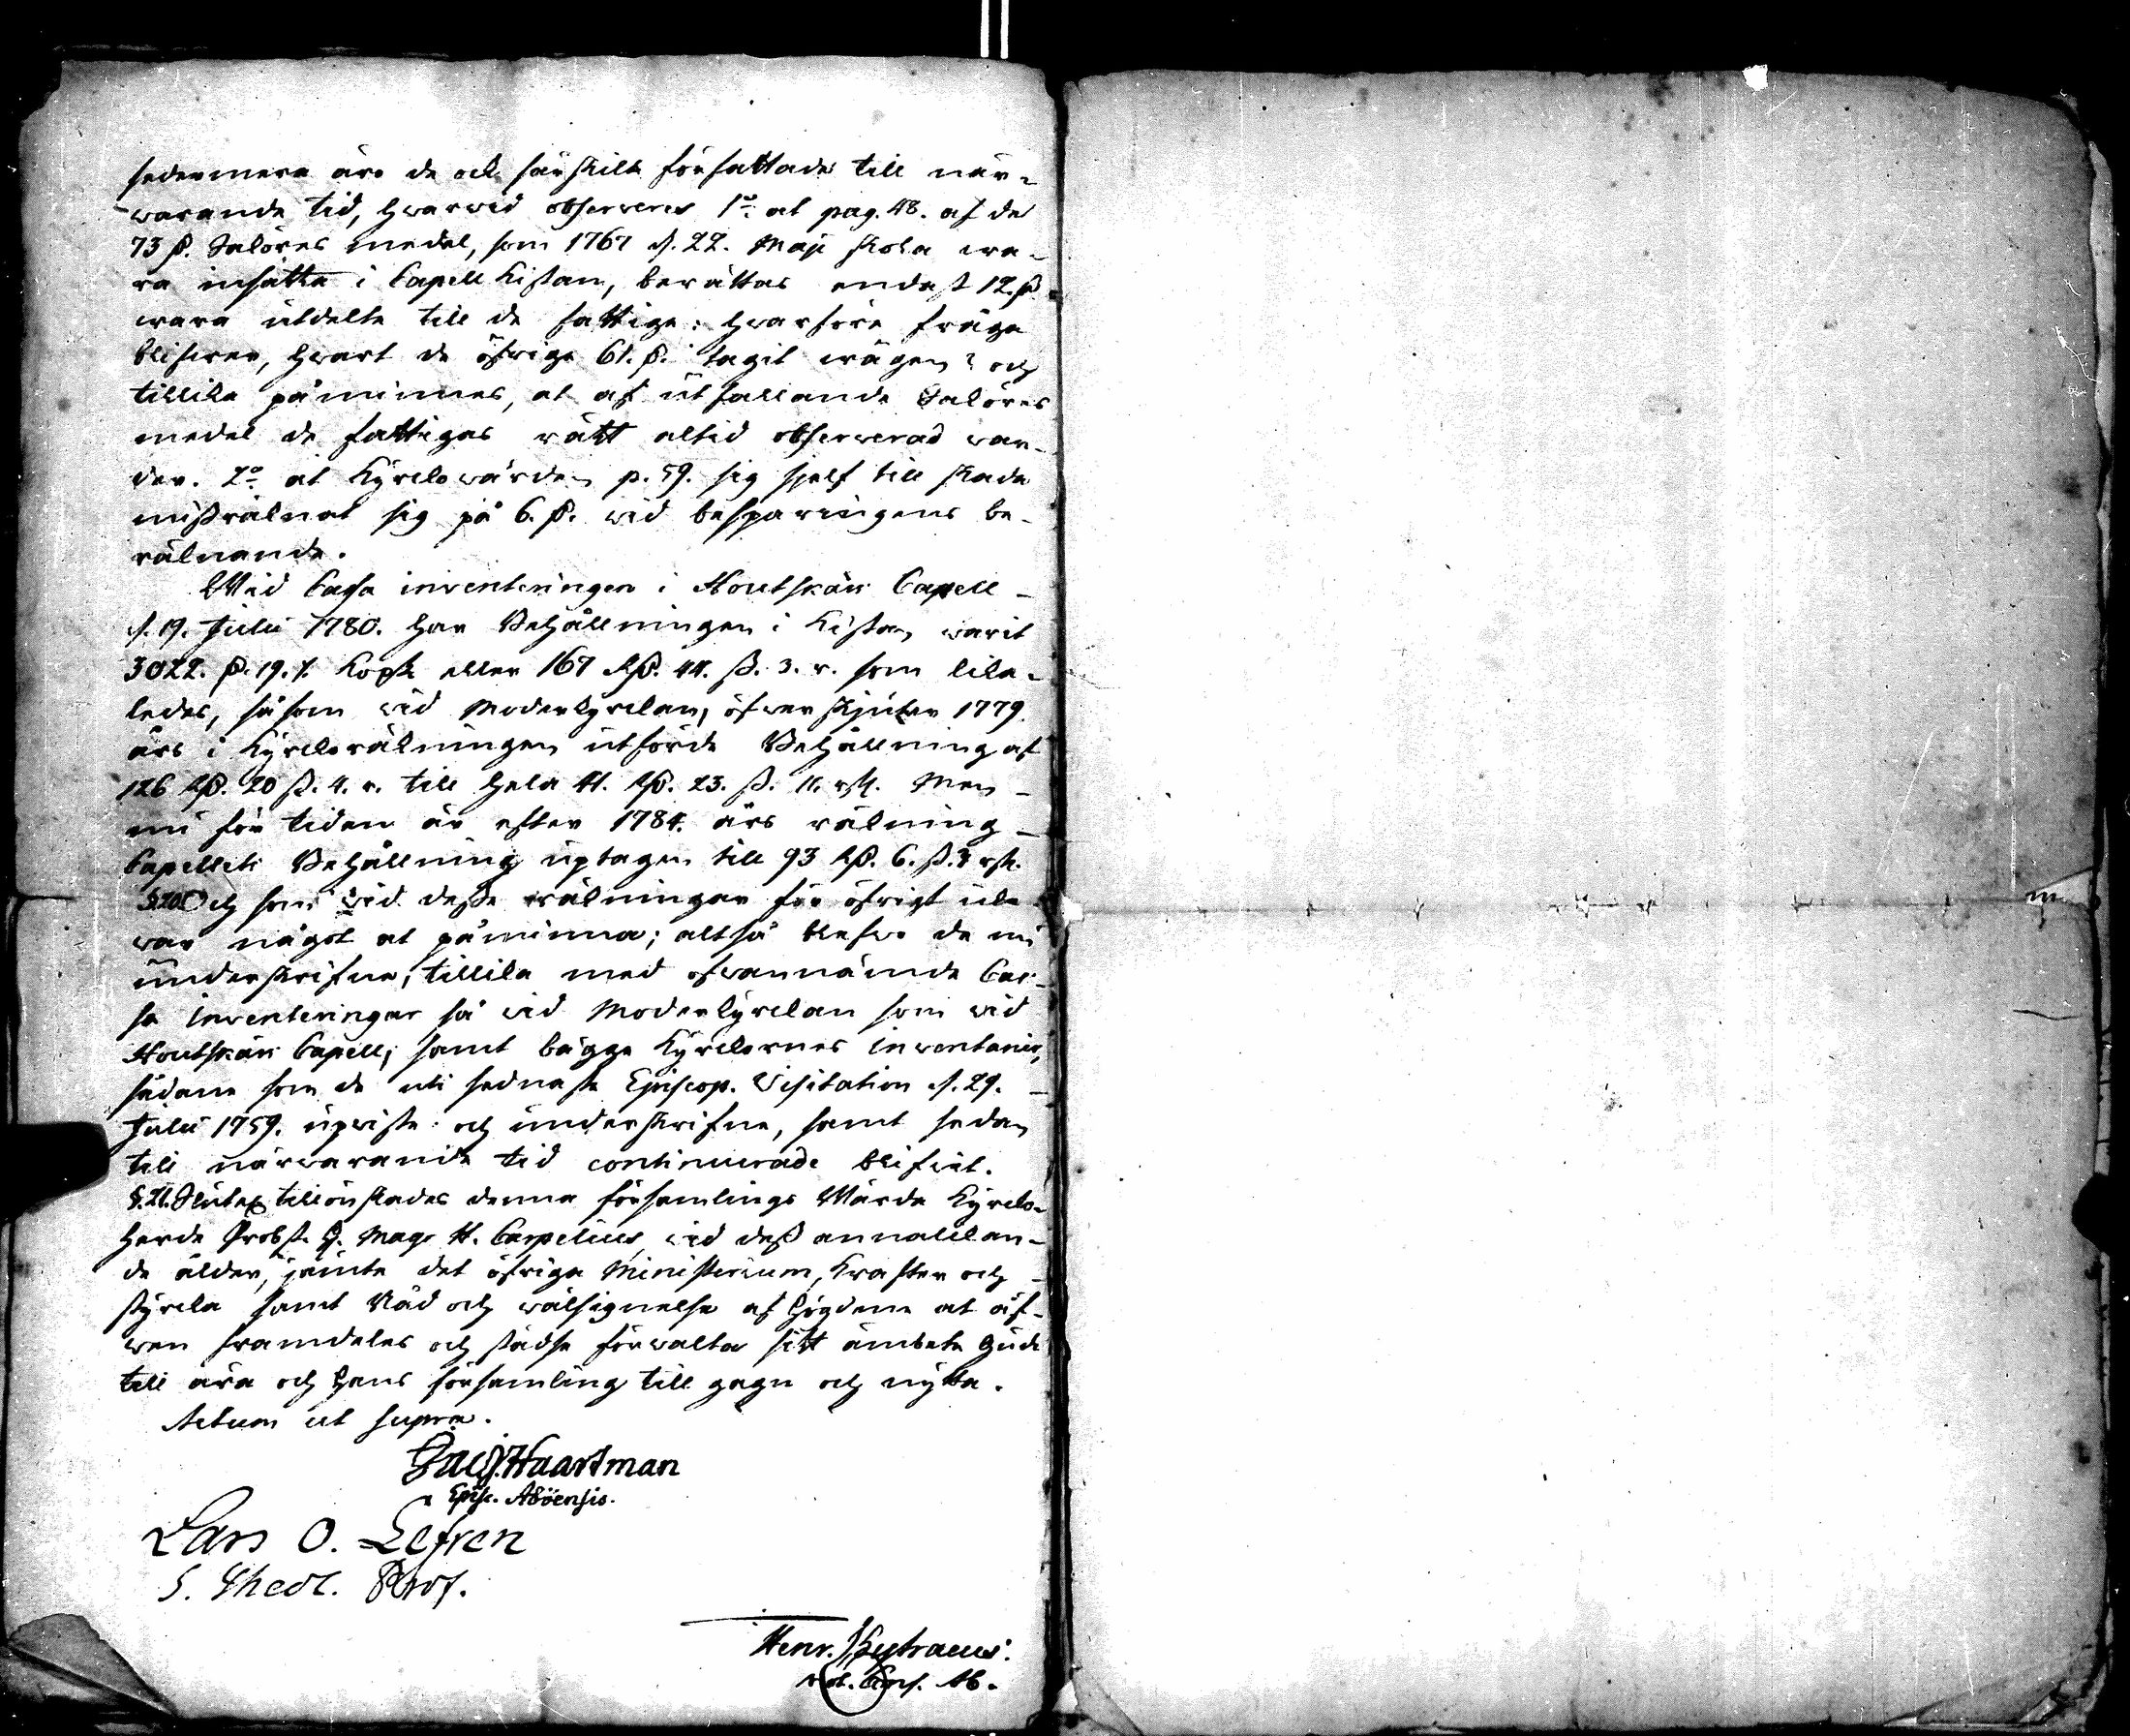 sedermera äro de och särskilt författade till när-
warande tid, hwarwid observeres 1:o at pag. 48. af de
73 P. Salören medel, som 1767 d. 22. Maji skola wa-
ra insätta i Capell Kistan, berättas endast 12. P.
wara utdelte till de fattige: hwarföre fråga
blifwer, hwart de öfrige 61. P. tagit wägen? och
tillika påminnes, at af utfallande Salöres
medel de fattigas rätt altid observerad war-
der. 2:o at Kyrckowärden p. 59. sig sjelf till skada
missräknat sig på 6. P. wid besparingens be-
räknande.
Wid Cassa inventeringen i Houtskärs Capell
d. 19. Julii 1780. har Behållningen i Kistan warit
3022. P. 19. Kopst. eller 167 RP. 44. ß. 3. r. som lika-
ledes, såsom wid Moderkyrckan, öfwerskjuter 1779.
års i Kyrckoräkningen utförde Behållning af
126 RP. 20 ß. 4. r. till hela 41. RP. 23. ß. 11. rst. Men
nu för tiden är efter 1784. års räkning
Capellets Behållning uptagen till 93 RP. 6. ß. 3 rst.
§. 20. Och som wid desse räkningar för öfrigt icke
war något at påminna; altså blefwo de nu
underskrifne, tillika med ofwannämnde Cas-
sa inventeringar så wid Moderkyrckan som wid
Houtskärs Capell, samt bägge Kyrckornes inventarier,
sådane som de uti sednaste Episcop. Visitation d. 29.
Julii 1759. upwiste och underskrifne, samt sedan
till närwarande tid continuerade blifwit.
§. 21. Slutel. tillönskades denna församlings Wärda Kyrcko-
herde Probst. H. Mag. H. Carpelius, wid dess annalkan-
de ålder, jämte det öfriga Ministerium, Krafter och
styrcka samt Nåd och wälsignelse af högdene at äf-
wen framdeles och städse förwalta sitt ämbete Gudi
till ära och hans församling till gagn och nytta.
Actum ut supra.
Jac. Haartman
Episc. Aböensis.
Lars O. Lefren
S. Theol. Prof.
Henr.
Not. Cons. Ab.